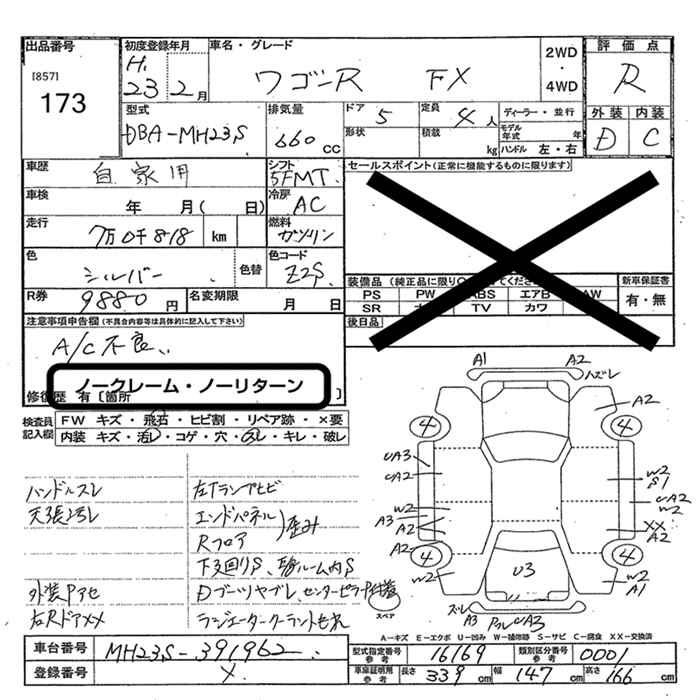 出品番号
[857]
173
初度登録年月
H.
23 2月
車名・グレード
ワゴンR FX
2WD
・
4WD
評価点
R
外装 内装
D C
型式
DBA-MH23S
排気量
660 CC
ドア 5
定員 4人
ディーラー・並行
形状
積載 kg
モデル年式 年
ハンドル 左・右
車歴
自家用
シフト
5FMT
車検
年 月( 日)
冷房
AC
走行
7万0千818 km
燃料
ガソリン
色
シルバー
色替
色コード
Z2S
R券
9880円
名変期限
月 日
セールスポイント(正常に機能するものに限ります)
装備品
新車保証書
PS PW ABS エアB AW
有・無
SR TV カワ
後日品
注意事項申告欄(不具合内容等は具体的に記入して下さい)
A/C不良
ノークレーム・ノーリターン
修復歴 有 [箇所 ]
検査員記入欄
FW キズ・飛石・ヒビ割・リペア跡・×要
内装 キズ・汚レ・コゲ・穴・スレ・キレ・破レ
ハンドルスレ
天張汚レ
外装Pアセ
右RドアXX
左Tランプヒビ
エンドパネル
Rフロア
歪み
下回りS、ルーム内S
Dブーツヤブレ、センターピラー
ラジエータークーラントもれ
A1
A2
ハズレ
A2
4
4
UA3
UA2
W2
A3
A2
A2
4
W2
W2
S1
UA2
W2
XX
A2
4
W2
A1
U3
スペア
ズレ
A3
UA3
A-キズ E-エクボ U-凹み W-補修跡 S-サビ C-腐食 XX-交換済
車台番号
MH23S-391962
登録番号
型式指定番号 参考
16169
類別区分番号 参考
0001
車庫証明用 参考
長さ 339 cm
幅 147 cm
高さ 166 cm